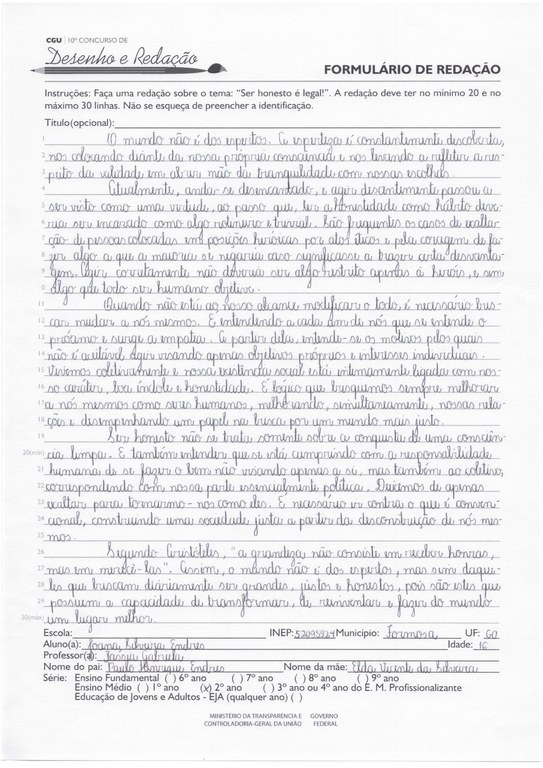 CGU | 10º CONCURSO DE
Desenho e Redação
FORMULÁRIO DE REDAÇÃO
Instruções: Faça uma redação sobre o tema: "Ser honesto é legal!". A redação deve ter no mínimo 20 e no
máximo 30 linhas. Não se esqueça de preencher a identificação.
Título(opcional):
1 O mundo não é dos espertos. A esperteza é constantemente descoberta,
2 nos colocando diante da nossa própria consciência e nos levando a refletir a res-
3 peito da validade em abrir mão da tranquilidade com nossas escolhas.
4 Atualmente, anda-se desencantado, e agir decentemente passou a
5 ser visto como uma virtude, ao passo que, ter a honestidade como hábito deve-
6 ria ser encarado como algo rotineiro e trivial. São frequentes os casos de exalta-
7 ção de pessoas colocadas em posições heróicas por atos éticos e pela coragem de fa-
8 zer algo a que a maioria se negaria caso significasse a trazer certa desvanta-
9 gem. Agir corretamente não deveria ser algo restrito apenas à heróis, e sim
0 algo que todo ser humano objetive.
11 Quando não está ao nosso alcance modificar o todo, é necessário bus-
12 car mudar a nós mesmos. É entendendo a cada um de nós que se entende o
13 próximo e surge a empatia. A partir dela, entende-se os motivos pelos quais
14 não é aceitável agir visando apenas objetivos próprios e interesses individuais.
15 Vivemos coletivamente e nossa existência social está intimamente ligada com nos-
16 so caráter, boa índole e honestidade. É lógico que busquemos sempre melhorar
17 a nós mesmos como seres humanos, melhorando, simultaneamente, nossas rela-
18 ções e desempenhando um papel na busca por um mundo mais justo.
19 Ser honesto não se trata somente sobre a conquista de uma consciên-
20(mín) cia limpa. É também entender que se está cumprindo com a responsabilidade
21 humana de se fazer o bem não visando apenas a si, mas também ao coletivo,
22 correspondendo com nossa parte essencialmente política. Deixemos de apenas
23 exaltar para tornarmo-nos como eles. É necessário ir contra o que é conven-
24 cional, construindo uma sociedade justa a partir da desconstrução de nós mes-
25 mos.
26 Segundo Aristóteles, "a grandeza não consiste em receber honras,
27 mas em merecê-las". Assim, o mundo não é dos espertos, mas sim daque-
28 les que buscam diariamente ser grandes, justos e honestos, pois são estes que
29 possuem a capacidade de transformar, de reinventar e fazer do mundo
30(máx) um lugar melhor.
Escola: INEP: 52095924 Município: Formosa UF: GO
Aluno(a): Joana Silveira Endres Idade: 16
Professor(a): Gabriela
Nome do pai: Paulo Henrique Endres Nome da mãe: Elda Vicente da Silveira
Série: Ensino Fundamental ( ) 6º ano ( ) 7º ano ( ) 8º ano ( ) 9º ano
Ensino Médio ( ) 1º ano (x) 2º ano ( ) 3º ano ou 4º ano do E. M. Profissionalizante
Educação de Jovens e Adultos - EJA (qualquer ano) ( )
MINISTÉRIO DA TRANSPARÊNCIA E GOVERNO
CONTROLADORIA-GERAL DA UNIÃO FEDERAL